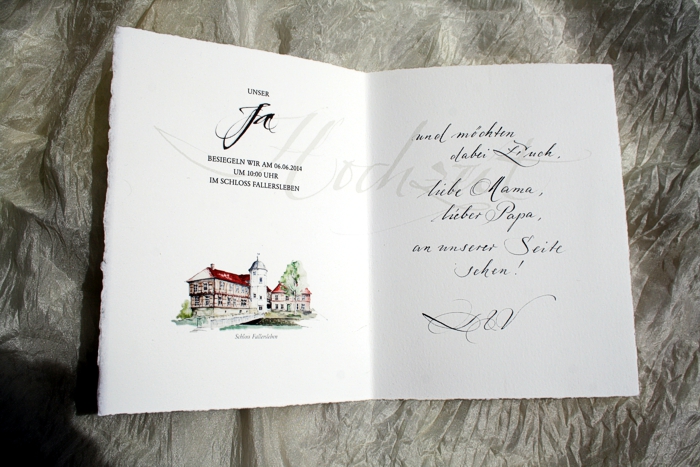 UNSER
Ja
BESIEGELN WIR AM 06.06.2014
UM 10:00 UHR
IM SCHLOSS FALLERSLEBEN
Schloss Fallersleben
Hochzeit
und möchten
dabei Euch,
liebe Mama,
lieber Papa,
an unserer Seite
sehen!